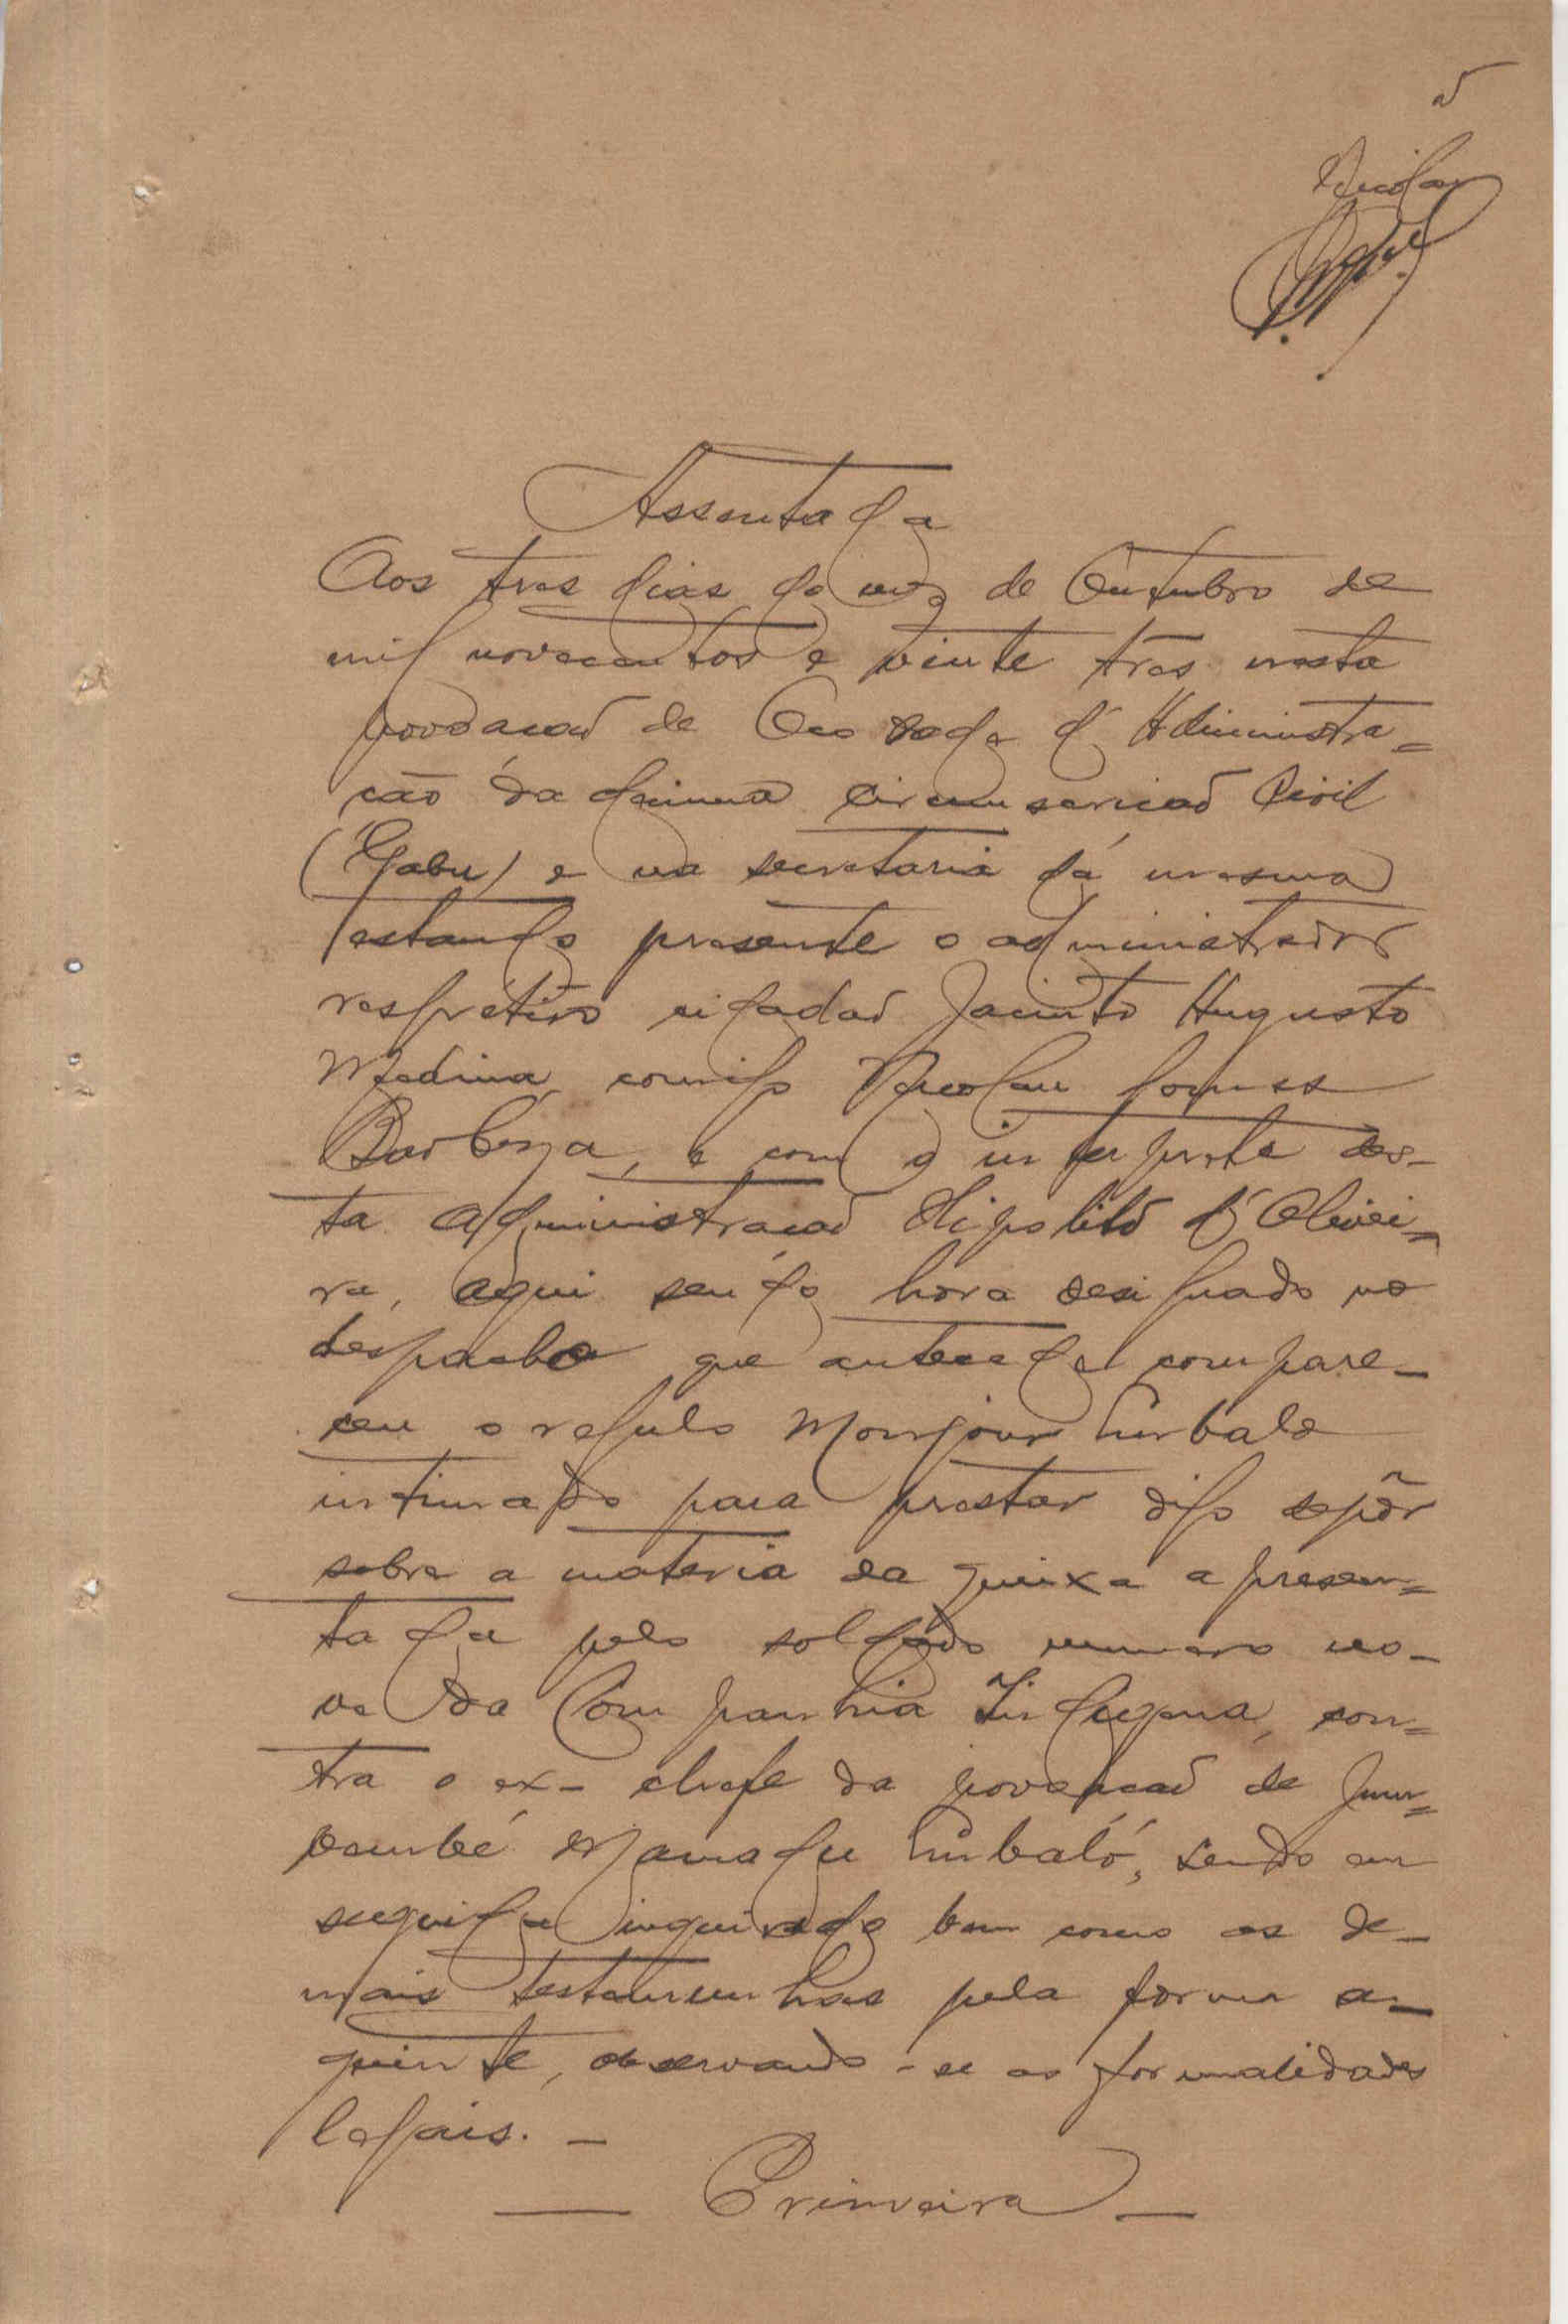 Nicolau
Assentada
Aos tres dias do mez de Outubro de
mil novecentos e vinte tres nesta
povoacaõ de Oco séde d' Administra=
cão da decima circumscricaõ Civil
(Gabu) e na secretaria dá mesma
estando presente o administrador
respétivo cidadaõ Jacinto Augusto
Medina, comigo Nicolau Gomes
Barboza, e com o interprete des-
ta administracaõ Hipolito d' Olivei=
ra, aqui sendo hora designado no
despacho que antecede compare-
ceu o regulo Monjour Embalo
intimado para prestar digo depôr
sobre a materia da queixa apresen=
tada pelo soldado numero no-
ve da Companhia Indigena, con=
tra o ex-chefe da povoacaõ de
Mamadu Embaló, sendo em
seguida inquirido bem como as de-
mais testemunhas pela forma se-
guinte, observando-se as formalidades
legais. -
- Primeira -